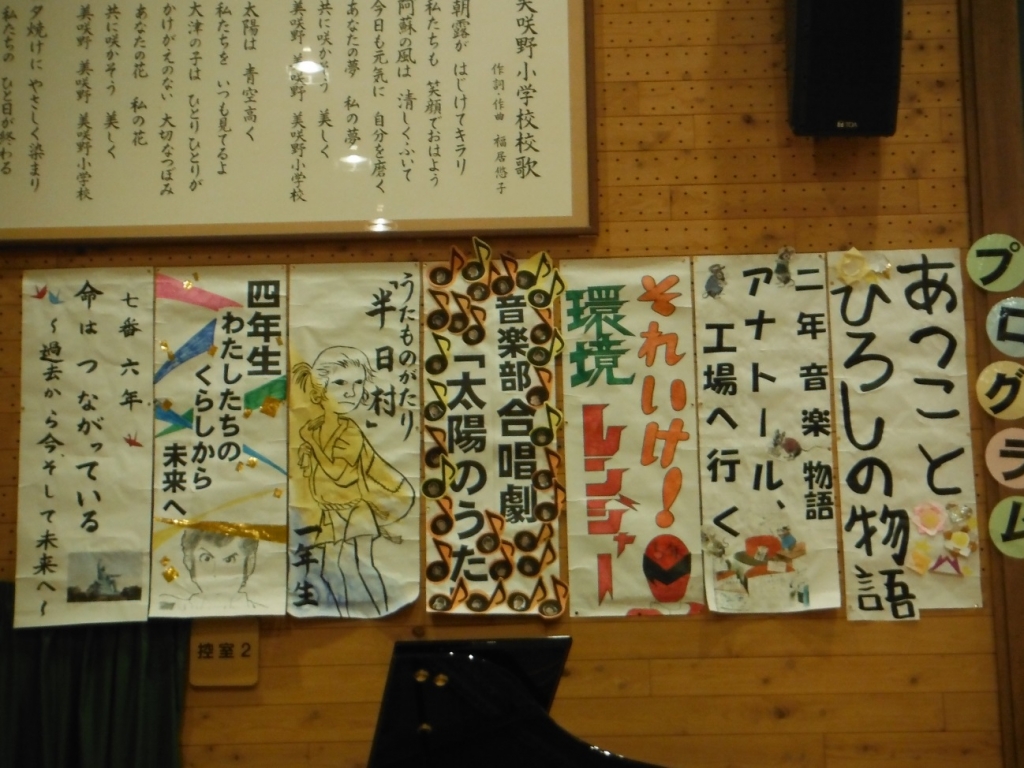 美咲野小学校校歌
作詞・作曲 福居悠子
朝露が はじけてキラリ
私たちも 笑顔でおはよう
阿蘇の風は 清しくふいて
今日も元気に 自分を磨く
あなたの夢 私の夢
共に咲かそう 美しく
美咲野 美咲野 美咲野小学校
太陽は 青空高く
私たちを いつも見てるよ
大津の子は ひとりひとりが
かけがえのない 大切なつぼみ
あなたの花 私の花
共に咲かそう 美しく
美咲野 美咲野 美咲野小学校
夕焼けに やさしく染まり
私たちの ひと日が終わる
TOA
プログラム
あつこと
ひろしの物語
二年音楽物語
アナトール、
工場へ行く
それいけ!
環境
レンジャー
音楽部合唱劇
「太陽のうた
うたものがたり
"半日村"
一年生
四年生
わたしたちの
くらしから
未来へ
七番 六年
命は つながっている
~過去から今そして未来へ~
控室2